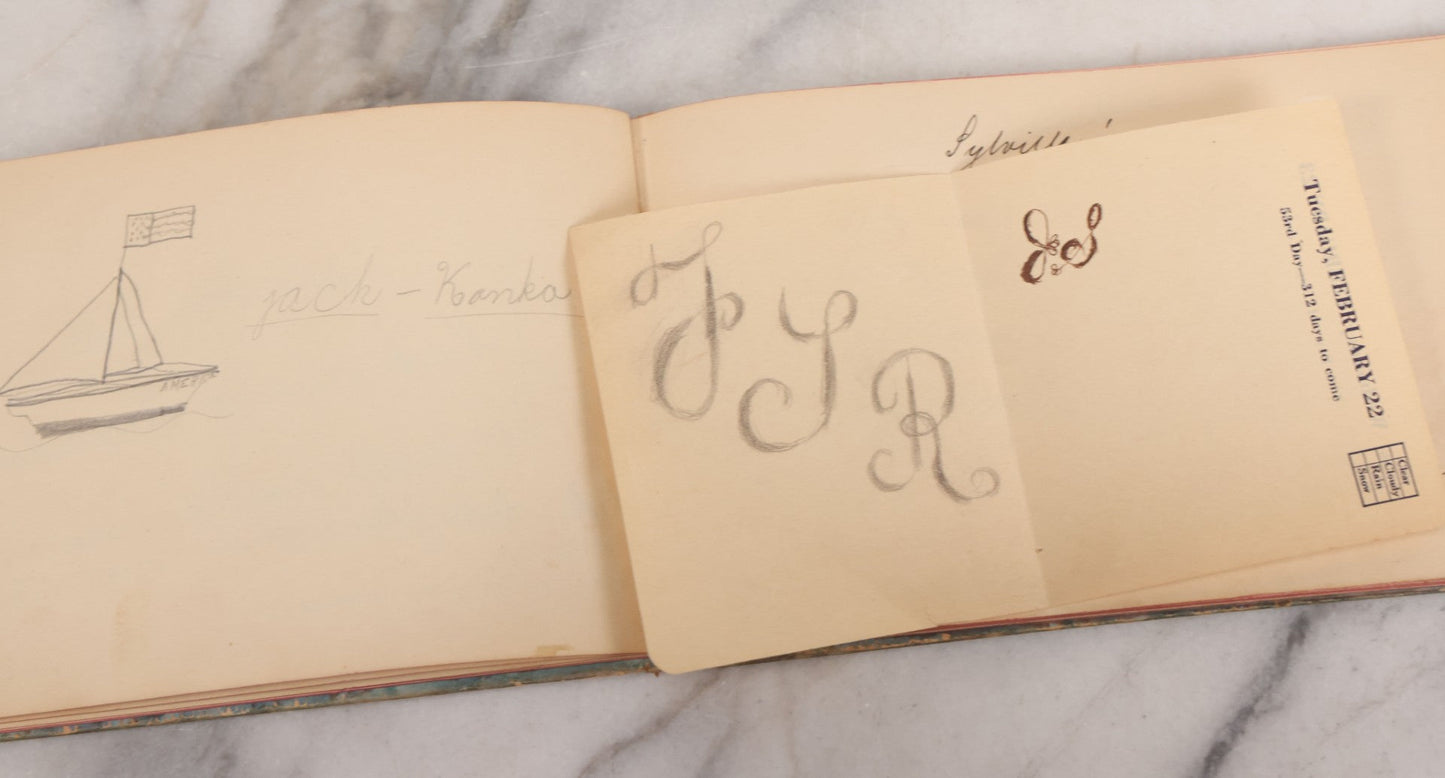 AMERICA
jack - Kanka
Sylvill
F S R
Tuesday, FEBRUARY 22
53rd Day—312 days to come
Clear
Cloudy
Rain
Snow